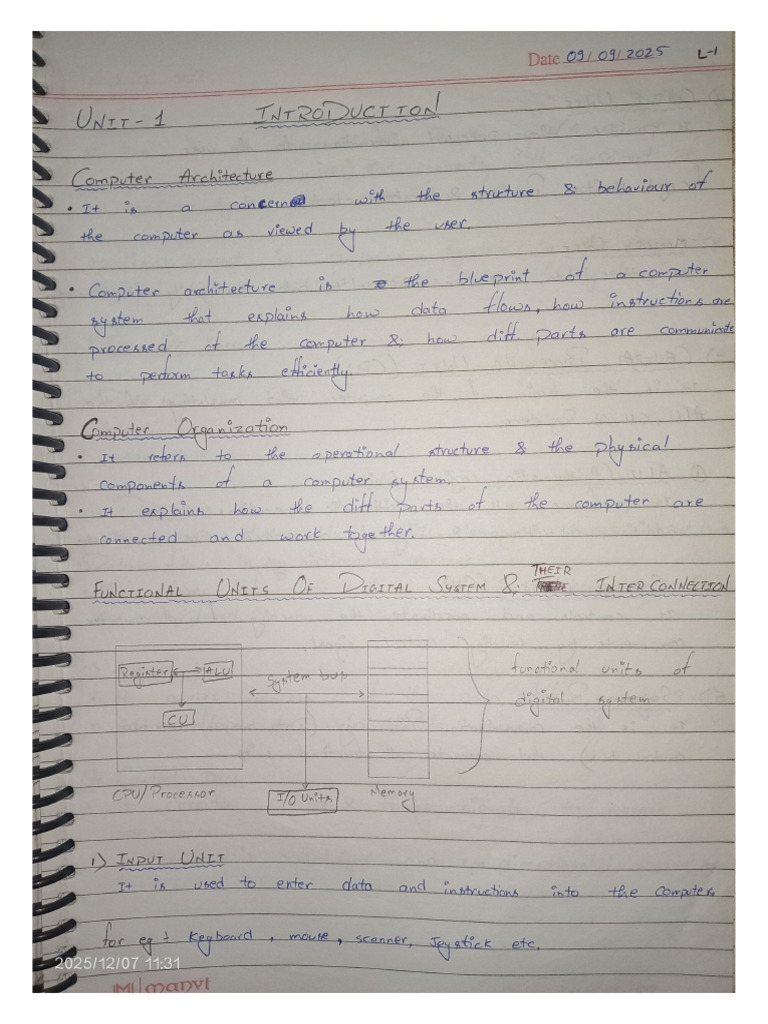 Date 09/09/2025 L-1
UNIT-1 INTRODUCTION
Computer Architecture
• It is a concerned with the structure & behaviour of
the computer as viewed by the user.
• Computer architecture is the blueprint of a computer
system that explains how data flows, how instructions are
processed of the computer & how diff parts are communicate
to perform tasks efficiently.
Computer Organization
• It refers to the operational structure & the physical
components of a computer system.
• It explains how the diff parts of the computer are
connected and work together.
FUNCTIONAL UNITS OF DIGITAL SYSTEM & THEIR INTERCONNECTION
Register ALU
System bus
functional units of
digital system
CU
CPU/Processor
I/O Units
Memory
1) INPUT UNIT
It is used to enter data and instructions into the computer.
for eg : Keyboard, mouse, scanner, Joystick etc.
2025/12/07 11:31
manvi